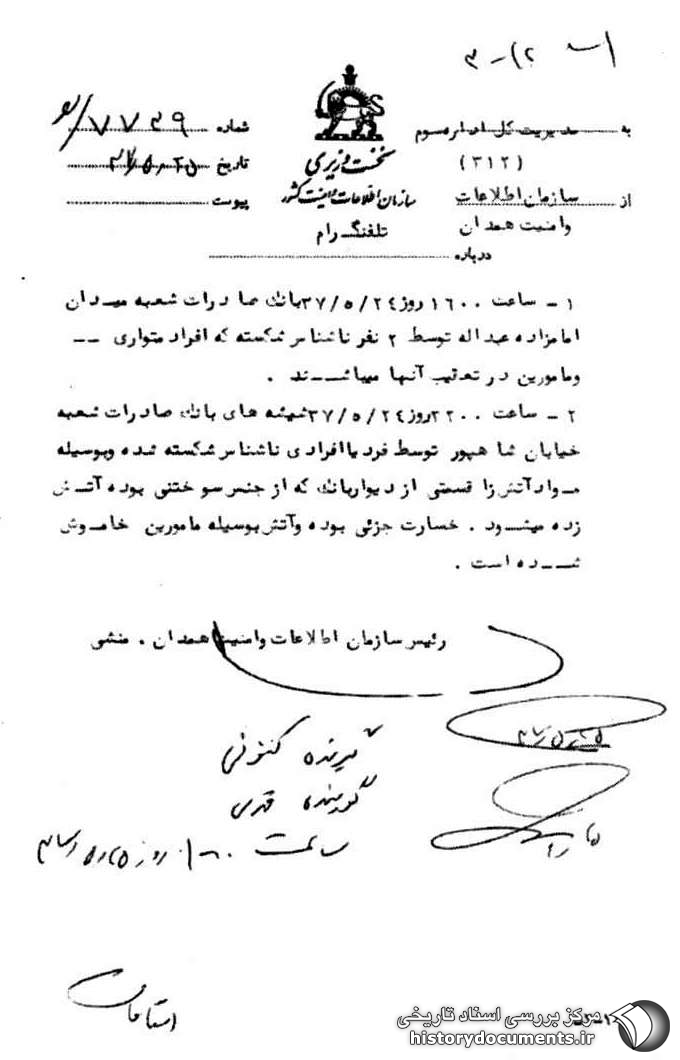 به مدیریت کل اداره سوم
(۳۱۲)
از سازمان اطلاعات
وامنیت همدان
نخست وزیری
سازمان اطلاعات و امنیت کشور
تلفنگرام
شماره ۷۷۳۹/
تاریخ
پیوست
درباره
۱ - ساعت ۱۶۰۰ روز ۳۷/۵/۲٤ بانك صادرات شعبه میدان
امامزاده عبداله توسط ۲ نفر ناشناس شکسته که افراد متواری --
ومامورین در تعقیب آنها میباشند .
۲ - ساعت ۲۲۰۰ روز ۳۷/۵/۲٤ شیشه های بانك صادرات شعبه
خیابان شاهپور توسط فرد یا افرادی ناشناس شکسته شده وبوسیله
مواد آتش زا قسمتی از دیوار بانك که از جنس سوختنی بوده آتش
زده میشود . خسارت جزئی بوده وآتش بوسیله مامورین خاموش
شده است .
رئیس سازمان اطلاعات وامنیت همدان . منشی
گیرنده
گوینده
ساعت روز
مرکز بررسی اسناد تاریخی
historydocuments.ir